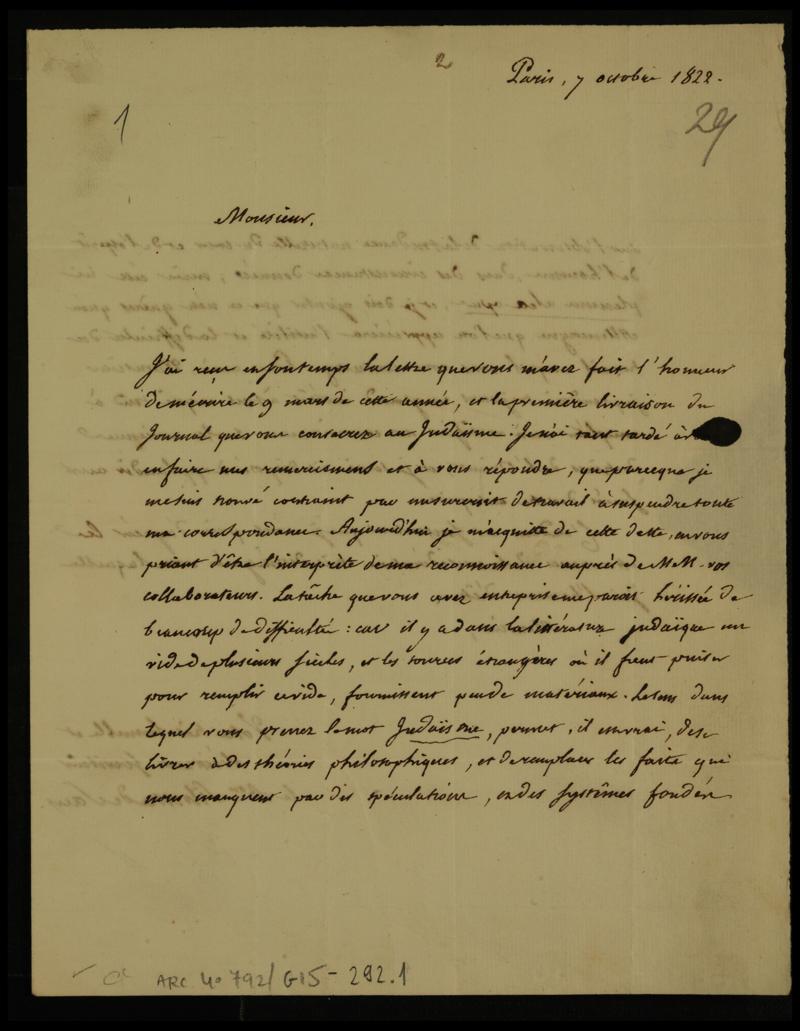 2
Paris, 7 octobre 1822.
1
29
Monsieur,
J'ai reçu en son temps la lettre que vous m'avez fait l'honneur
de m'écrire le 9 mars de cette année, et la première livraison du
Journal que vous consacrez au Judaïsme. Je n'ai tant tardé à
en faire mes remerciemens et à vous répondre, que parceque je
me suis trouvé contraint par un surcroit de travail à suspendre toute
ma correspondance. Aujourd'hui je m'acquitte de cette dette, en vous
priant d'être l'interprète de ma reconnoissance auprès de MM. vos
collaborateurs. La tâche que vous avez entreprise me parois hérissée de
beaucoup de difficulté : car il y a dans la littérature judaïque un
vide de plusieurs siècles, et les sources étrangères où il faut puiser
pour remplir ce vide, fournissent peu de matériaux. Le sens dans
lequel vous prenez le mot Judaïsme, permet, il est vrai, de se
livrer à des théories philosophiques, et de remplacer les faits qui
nous manquent par des spéculations, ou des systêmes fondés
ARC 4o 792/G15-292.1